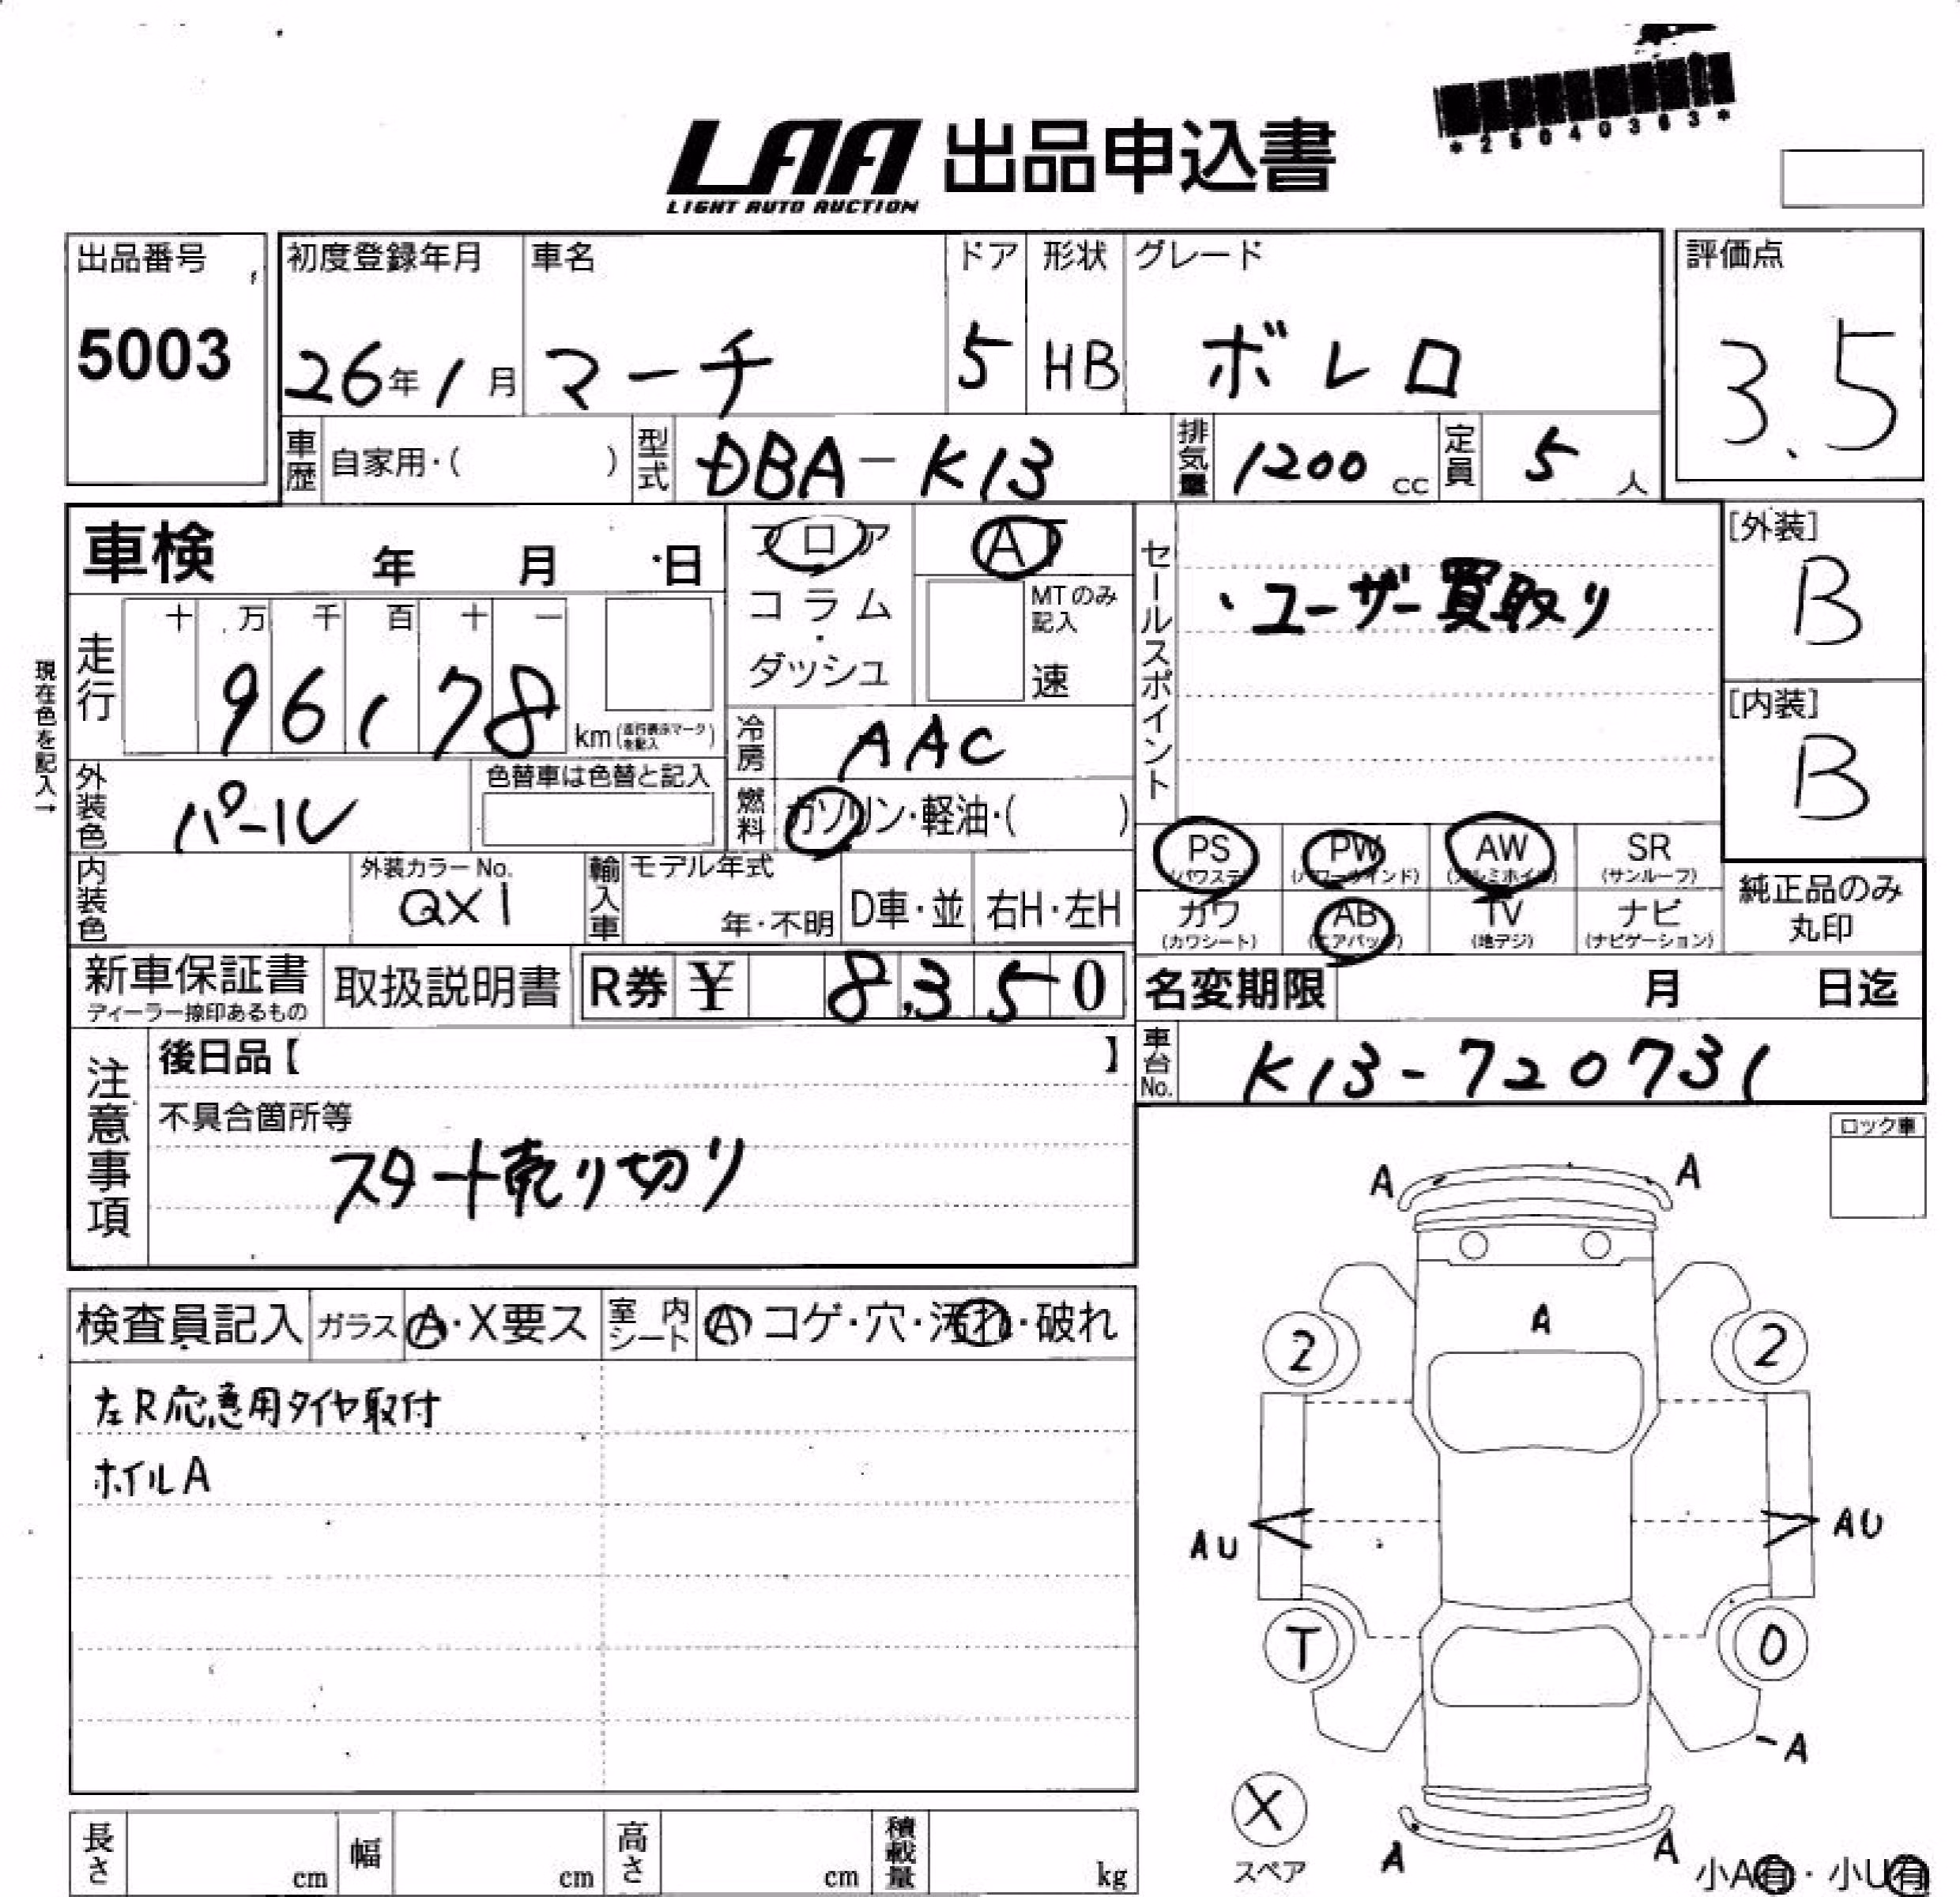 *25040363*
LAA 出品申込書
LIGHT AUTO AUCTION
出品番号 初度登録年月 車名 ドア 形状 グレード 評価点
5003 26年1月 マーチ 5 HB ボレロ 3.5
車歴 自家用・( ) 型式 DBA-K13 排気量 1200 cc 定員 5 人
車検 年 月 日 フロア AT [外装]
コラム・ MTのみ記入 セールスポイント ・ユーザー買取り B
走行 十 万 千 百 十 一 ダッシュ 速
96,178 km(走行表示マークを記入) 冷房 AAC [内装]
現在色を記入→ B
外装色 パール 色替車は色替と記入 燃料 ガソリン・軽油・( )
PS PW AW SR
(パワステ) (パワーウインド) (アルミホイル) (サンルーフ)
内装色 外装カラーNo. QX1 輸入車 モデル年式 年・不明 D車・並 右H・左H
カワ AB TV ナビ 純正品のみ
(カワシート) (エアバック) (地デジ) (ナビゲーション) 丸印
新車保証書 取扱説明書 R券 ¥ 8,350 名変期限 月 日迄
ディーラー捺印あるもの
注意事項 後日品【 】 車台No. K13-720731
不具合箇所等 ロック車
スタート売り切り
A A
検査員記入 ガラス A・X要ス 室内シート A コゲ・穴・汚れ・破れ A
2 2
左R応急用タイヤ取付
ホイルA
AU AU
T 0
-A
X
スペア A A
長さ cm 幅 cm 高さ cm 積載量 kg 小A有・小U有